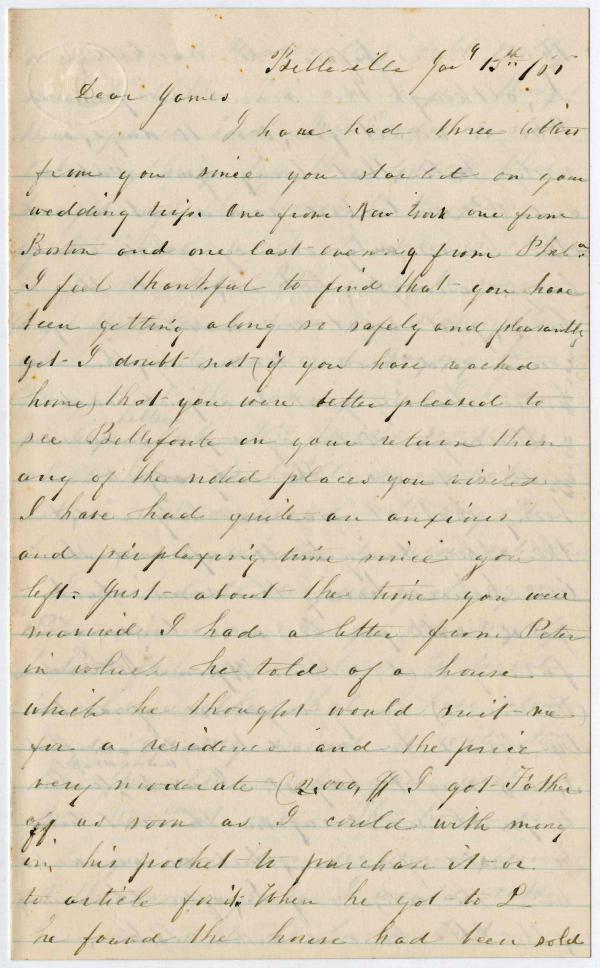 Belleville Jany 13th /65
Dear James
I have had three letters
from you since you started on your
wedding trip. One from New York one from
Boston and one last evening from Phila.
I feel thankful to find that you have
been getting along so safely and pleasantly
yet I doubt not (if you have reached
home) that you were better pleased to
see Bellefonte on your return than
any of the noted places you visited
I have had quite an anxious
and perplexing time since you
left. Just about the time you were
married I had a letter from Peter
in which he told of a house
which he thought would suit me
for a residence and the price
very moderate (2,000, I got Father
off as soon as I could with money
in his pocket to purchase it or
to article for it. When he got to L
he found the house had been sold